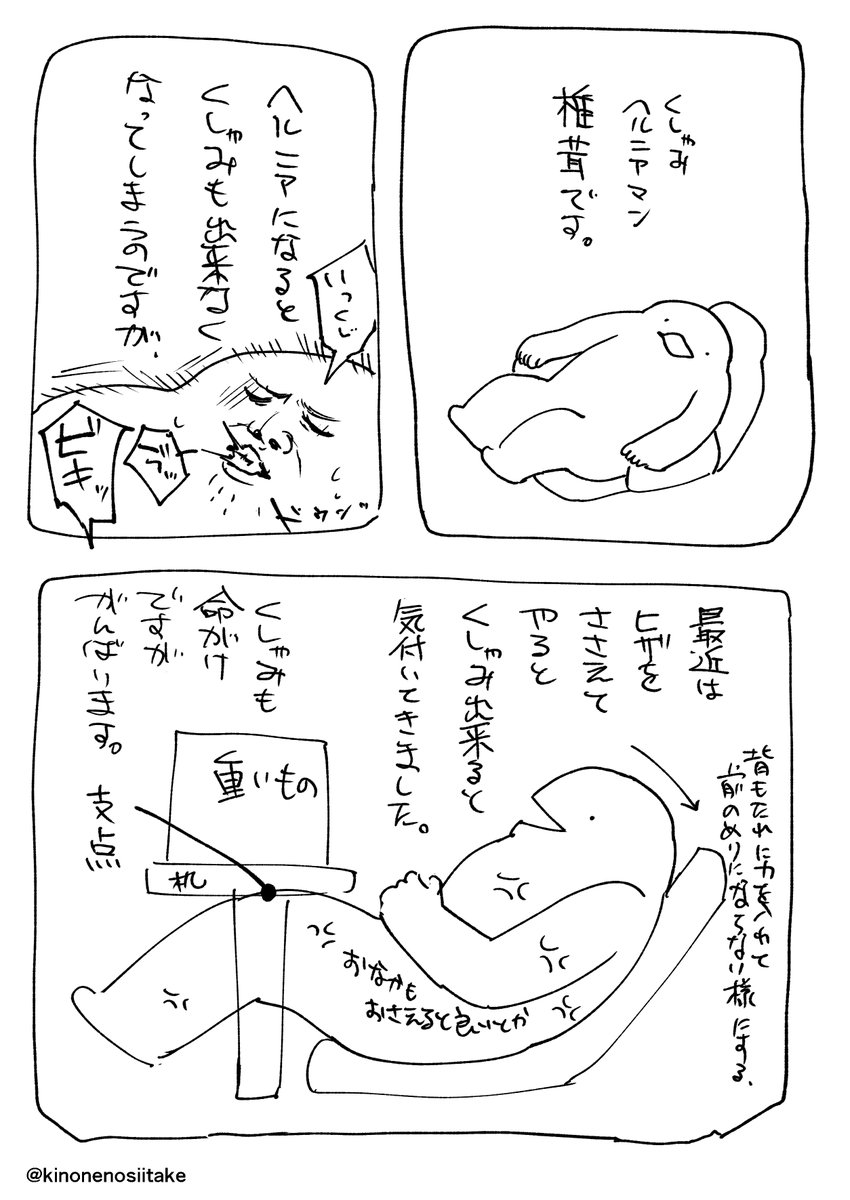 くしゃみ
ヘルニアマン
椎茸です。
ヘルニアになると
くしゃみも出来なく
なってしまうのですが、
いっくし
ビキッ
ドゥンッ
最近は
ヒザを
ささえて
やると
くしゃみ出来ると
気付いてきました。
くしゃみも
命がけ
ですが
がんばります。
背もたれに力を入れて
前のめりにならない様にする、
重いもの
机
支点
おなかも
おさえると良いとか
@kinonenosiitake